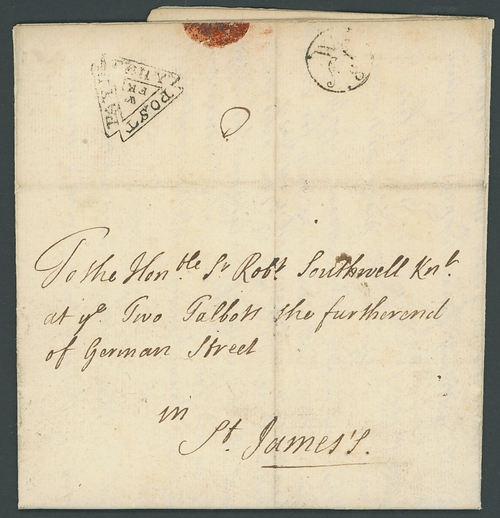 POST
PAYD
To the Honble Sr Robt Southwell Knt.
at ye Two Talbotts the further end
of German Street
in
St. James's.